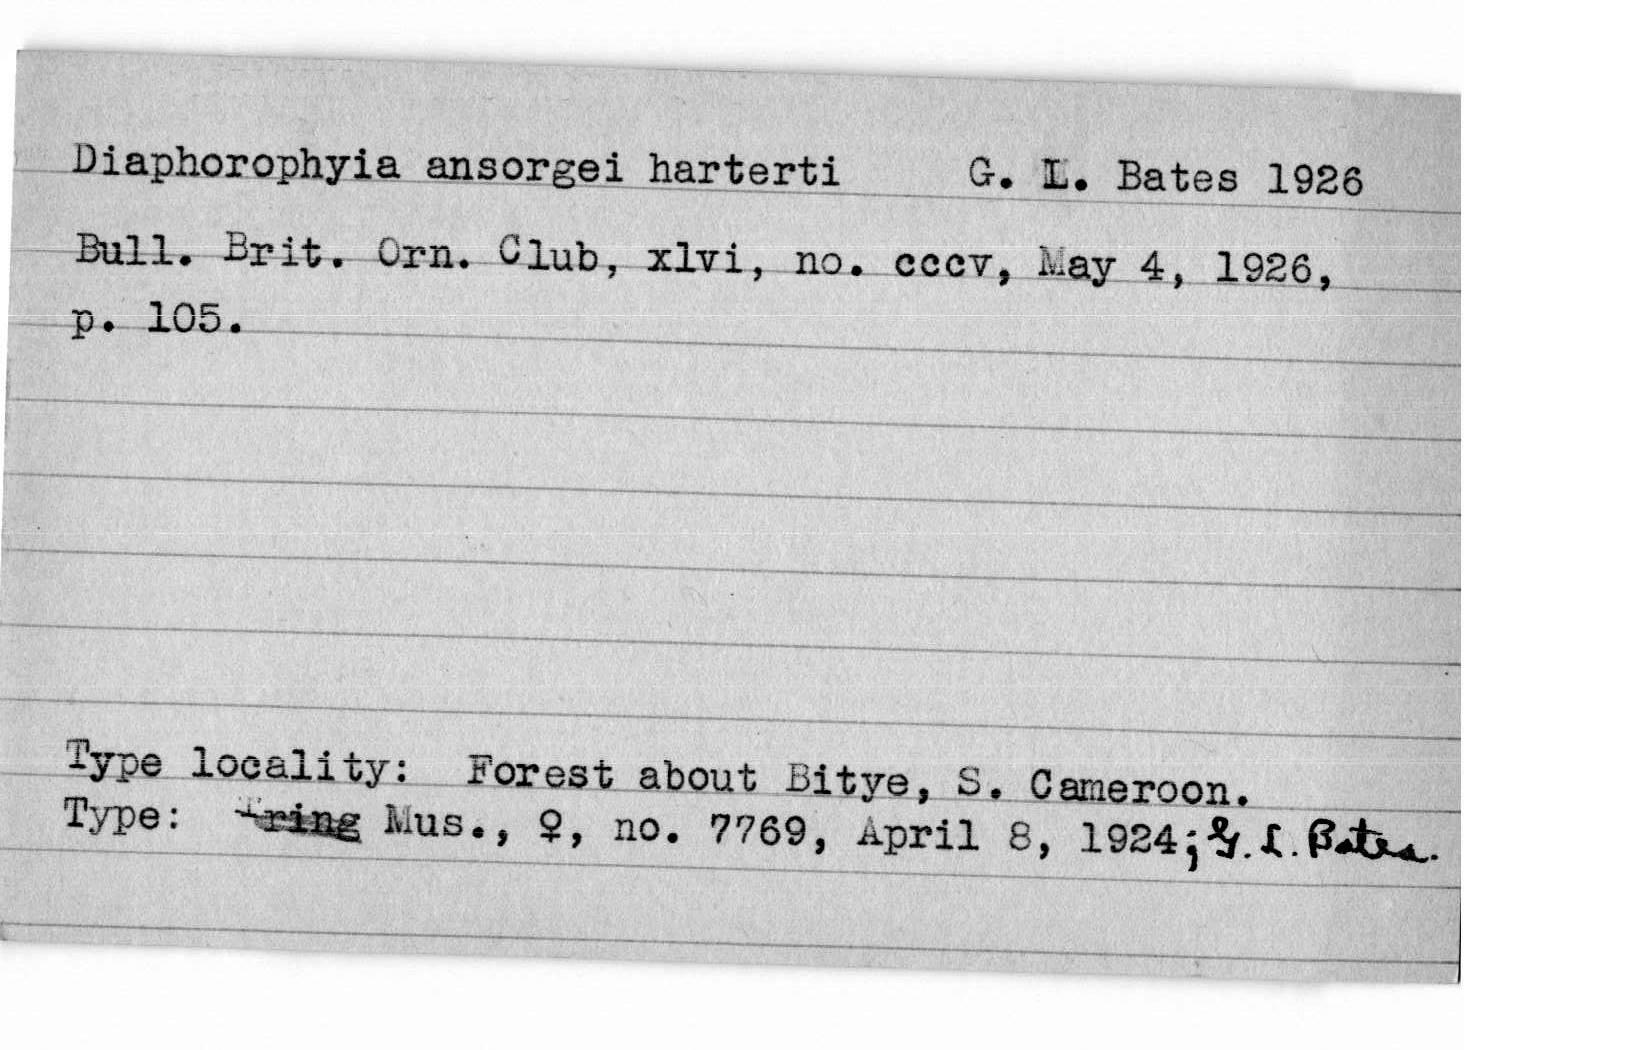 Diaphorophyia ansorgei harterti G. L. Bates 1926
Bull. Brit. Orn. Club, xlvi, no. cccv, May 4, 1926,
p. 105.
Type locality: Forest about Bitye, S. Cameroon.
Type: Tring Mus., ♀, no. 7769, April 8, 1924; G. L. Bates.